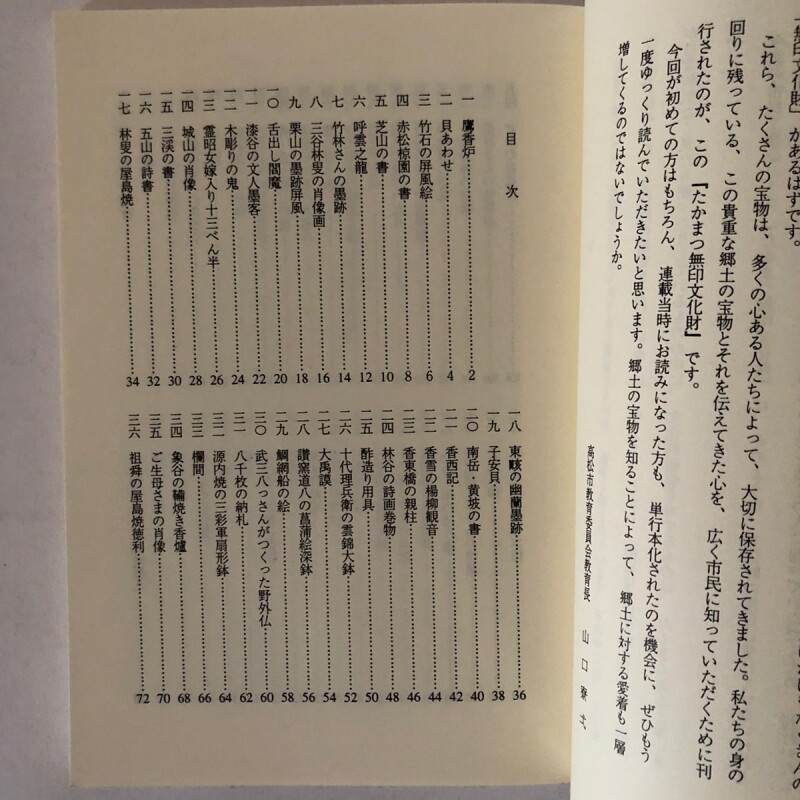 「無印文化財」があるはずです。
これら、たくさんの宝物は、多くの心ある人たちによって、大切に保存されてきました。私たちの身の
回りに残っている、この貴重な郷土の宝物とそれを伝えてきた心を、広く市民に知っていただくために刊
行されたのが、この『たかまつ無印文化財』です。
今回が初めての方はもちろん、連載当時にお読みになった方も、単行本化されたのを機会に、ぜひもう
一度ゆっくり読んでいただきたいと思います。郷土の宝物を知ることによって、郷土に対する愛着も一層
増してくるのではないでしょうか。
高松市教育委員会教育長 山口
目次
一 鷹香炉 2
二 貝あわせ 4
三 竹石の屏風絵 6
四 赤松椋園の書 8
五 芝山の書 10
六 呼雲之龍 12
七 竹林さんの墨跡 14
八 三谷林叟の肖像画 16
九 栗山の墨跡屏風 18
一〇 舌出し閻魔 20
一一 漆谷の文人墨客 22
一二 木彫りの鬼 24
一三 霊昭女嫁入り十三ぺん半 26
一四 城山の肖像 28
一五 三渓の書 30
一六 五山の詩書 32
一七 林叟の屋島焼 34
一八 東畡の幽蘭墨跡 36
一九 子安貝 38
二〇 南岳・黄坡の書 40
二一 香西記 42
二二 香雪の楊柳観音 44
二三 香東橋の親柱 46
二四 林谷の詩画巻物 48
二五 酢造り用具 50
二六 十代理兵衛の雲錦大鉢 52
二七 大禹謨 54
二八 讃窯道八の菖蒲絵深鉢 56
二九 鯛網船の絵 58
三〇 武三八っさんがつくった野外仏 60
三一 八千枚の納札 62
三二 源内焼の三彩軍扇形鉢 64
三三 欄間 66
三四 象谷の鞴焼き香爐 68
三五 ご生母さまの肖像 70
三六 祖舜の屋島焼徳利 72